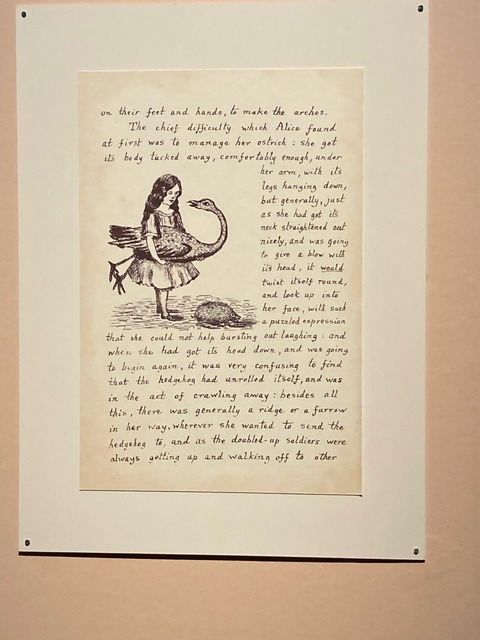 on their feet and hands, to make the arches.
The chief difficulty which Alice found
at first was to manage her ostrich: she got
its body tucked away, comfortably enough, under
her arm, with its
legs hanging down,
but generally, just
as she had got its
neck straightened out
nicely, and was going
to give a blow with
its head, it would
twist itself round,
and look up into
her face, with such
a puzzled expression
that she could not help bursting out laughing: and
when she had got its head down, and was going
to begin again, it was very confusing to find
that the hedgehog had unrolled itself, and was
in the act of crawling away: besides all
this, there was generally a ridge or a furrow
in her way, wherever she wanted to send the
hedgehog to, and as the doubled-up soldiers were
always getting up and walking off to other